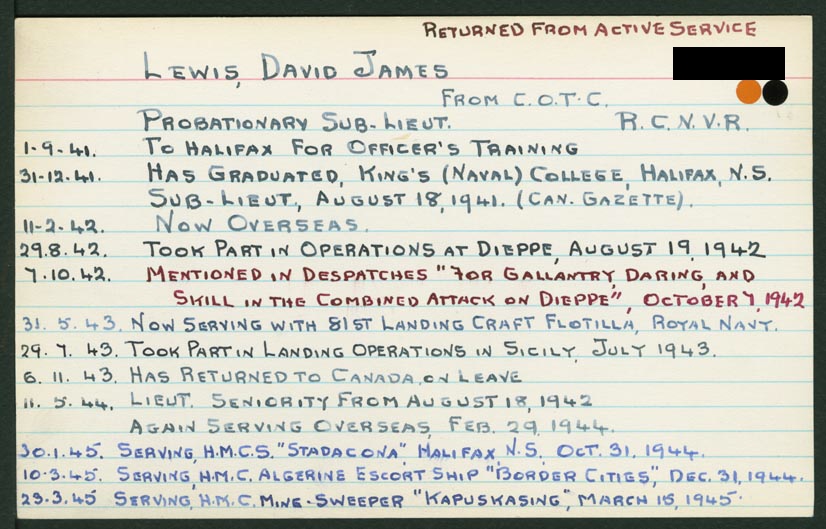 RETURNED FROM ACTIVE SERVICE
LEWIS, DAVID JAMES
FROM C.O.T.C.
PROBATIONARY SUB-LIEUT. R.C.N.V.R.
1-9-41. TO HALIFAX FOR OFFICER'S TRAINING
31-12-41. HAS GRADUATED, KING'S (NAVAL) COLLEGE, HALIFAX, N.S.
SUB-LIEUT., AUGUST 18, 1941. (CAN. GAZETTE).
11-2-42. NOW OVERSEAS.
29.8.42. TOOK PART IN OPERATIONS AT DIEPPE, AUGUST 19, 1942
7.10.42. MENTIONED IN DESPATCHES "FOR GALLANTRY, DARING, AND
SKILL IN THE COMBINED ATTACK ON DIEPPE", OCTOBER 7, 1942
31. 5. 43. NOW SERVING WITH 81ST LANDING CRAFT FLOTILLA, ROYAL NAVY.
29. 7. 43. TOOK PART IN LANDING OPERATIONS IN SICILY, JULY 1943.
6. 11. 43. HAS RETURNED TO CANADA, ON LEAVE
11. 5. 44. LIEUT. SENIORITY FROM AUGUST 18, 1942
AGAIN SERVING OVERSEAS, FEB. 29, 1944.
30.1.45. SERVING, H.M.C.S. "STADACONA" HALIFAX N.S., OCT. 31, 1944.
10.3.45. SERVING, H.M.C. ALGERINE ESCORT SHIP "BORDER CITIES", DEC. 31, 1944.
23.3.45 SERVING, H.M.C. MINE-SWEEPER "KAPUSKASING", MARCH 15, 1945.